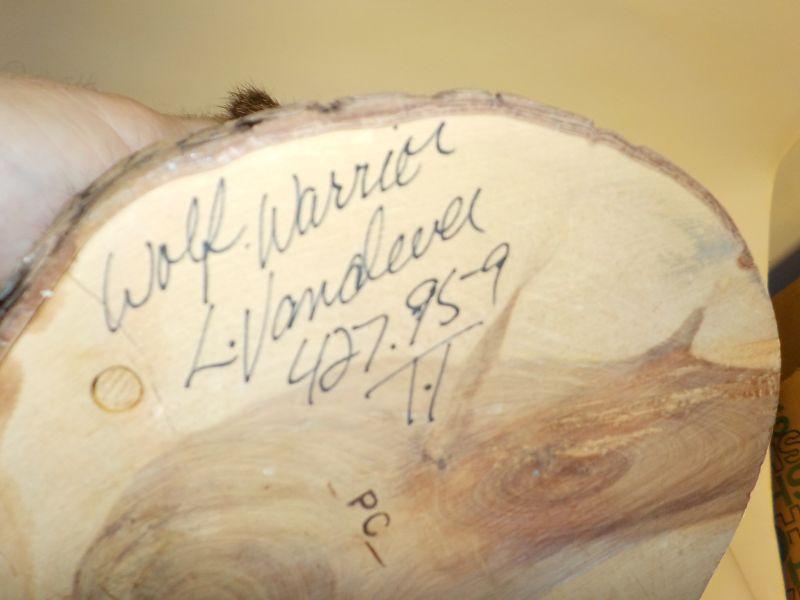 Wolf. Warrior
L. Vandever
427.95-9
T.1
-PC-